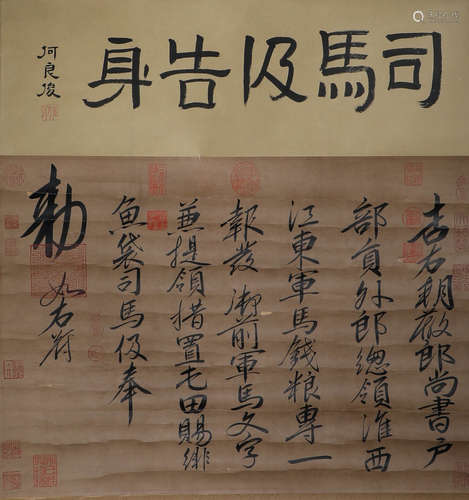 司馬伋告身
何良俊
告右朝散郎尚書戶
部員外郎總領淮西
江東軍馬錢粮專一
報發 御前軍馬文字
兼提領措置屯田賜緋
魚袋司馬伋奉
勅
如右符